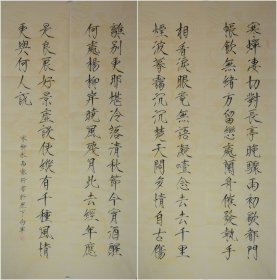 寒蟬凄切對長亭晚驟雨初歇都門
帳飲無緒方留戀處蘭舟催發執手
相看淚眼竟無語凝噎念去去千里
煙波暮靄沉沉楚天闊多情自古傷
離別更那堪冷落清秋節今宵酒醒
何處楊柳岸曉風殘月此去經年應
是良辰好景虛設便縱有千種風情
更與何人説
宋柳永雨霖鈴